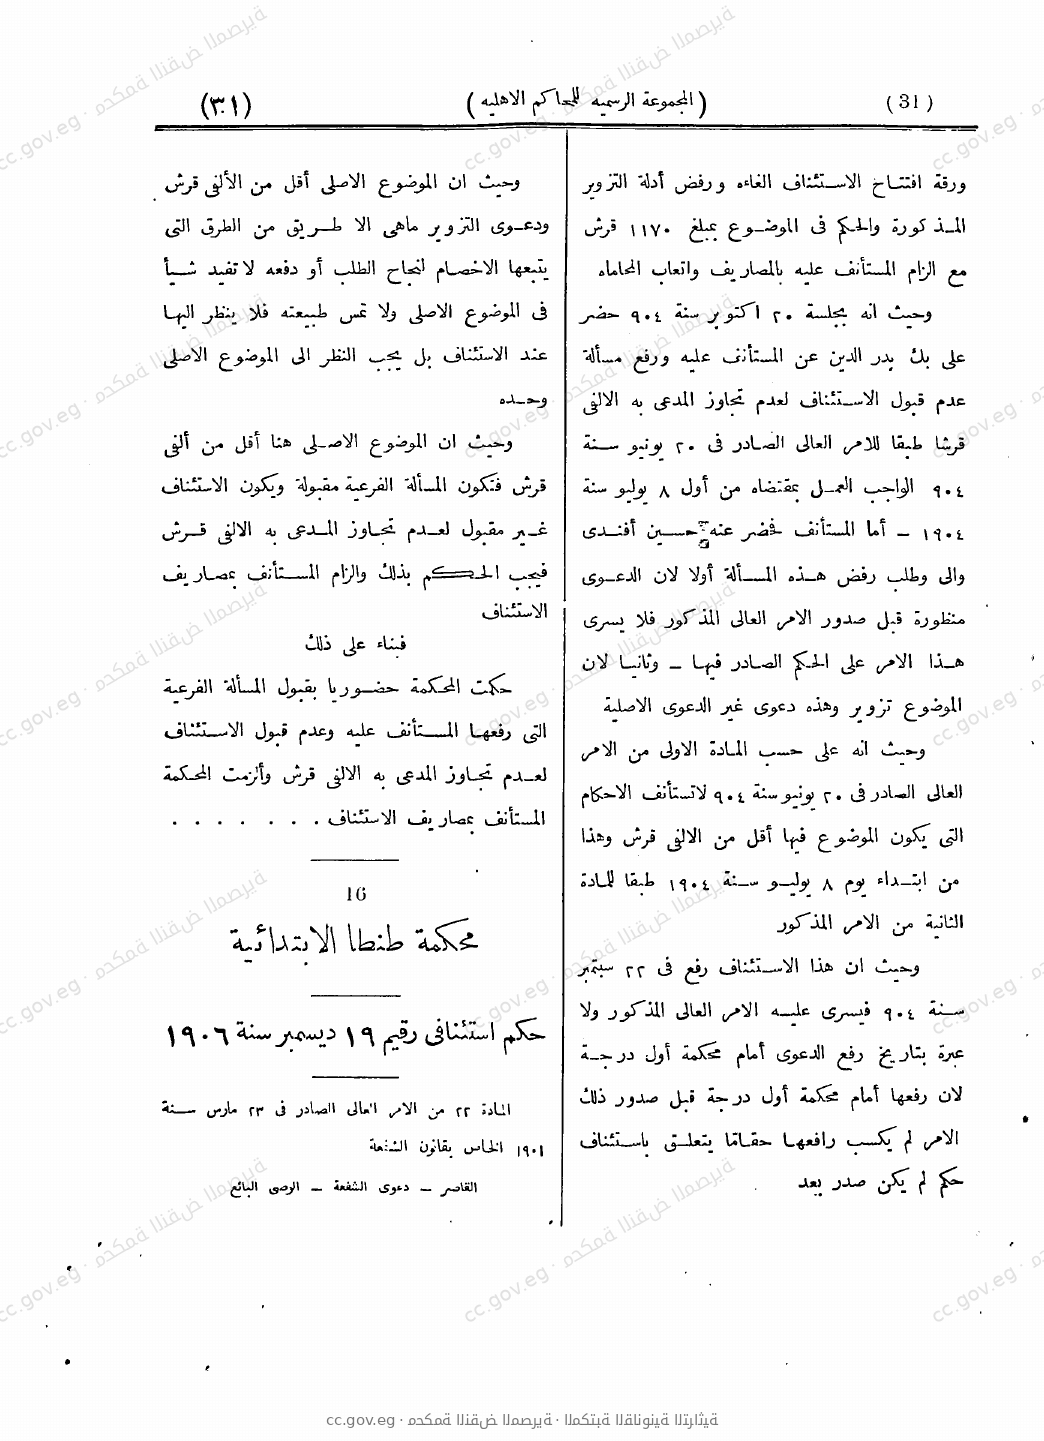 (31)
(المجموعة الرسمية للمحاكم الاهليه)
(٣١)
ورقة افتتاح الاستئناف الغاءه ورفض أدلة التزوير
المذكورة والحكم فى الموضوع بمبلغ ١١٧٠ قرش
مع الزام المستأنف عليه بالمصاريف واتعاب المحاماه
وحيث انه بجلسة ٢٠ اكتوبر سنة ٩٠٤ حضر
على بك بدر الدين عن المستأنف عليه ورفع مسألة
عدم قبول الاستئناف لعدم تجاوز المدعى به الالفى
قرشا طبقا للامر العالى الصادر فى ٢٠ يونيو سنة
٩٠٤ الواجب العمل بمقتضاه من أول ٨ يوليو سنة
١٩٠٤ – أما المستأنف فحضر عنه حسين أفندى
والى وطلب رفض هذه المسألة أولا لان الدعوى
منظورة قبل صدور الامر العالى المذكور فلا يسرى
هذا الامر على الحكم الصادر فيها – وثانيا لان
الموضوع تزوير وهذه دعوى غير الدعوى الاصلية
وحيث انه على حسب المادة الاولى من الامر
العالى الصادر فى ٢٠ يونيو سنة ٩٠٤ لا تستأنف الاحكام
التى يكون الموضوع فيها أقل من الالفى قرش وهذا
من ابتداء يوم ٨ يوليو سنة ١٩٠٤ طبقا للمادة
الثانية من الامر المذكور
وحيث ان هذا الاستئناف رفع فى ٢٢ سبتمبر
سنة ٩٠٤ فيسرى عليه الامر العالى المذكور ولا
عبرة بتاريخ رفع الدعوى أمام محكمة أول درجة
لان رفعها أمام محكمة أول درجة قبل صدور ذلك
الامر لم يكسب رافعها حقا ما يتعلق باستئناف
حكم لم يكن صدر بعد
وحيث ان الموضوع الاصلى أقل من الألفى قرش
ودعوى التزوير ماهى الا طريق من الطرق التى
يتبعها الاخصام لنجاح الطلب أو دفعه لا تفيد شيأ
فى الموضوع الاصلى ولا تمس طبيعته فلا ينظر اليها
عند الاستئناف بل يجب النظر الى الموضوع الاصلى
وحده
وحيث ان الموضوع الاصلى هنا أقل من ألفى
قرش فتكون المسألة الفرعية مقبولة ويكون الاستئناف
غير مقبول لعدم تجاوز المدعى به الالفى قرش
فيجب الحكم بذلك والزام المستأنف بمصاريف
الاستئناف
فبناء على ذلك
حكمت المحكمة حضوريا بقبول المسألة الفرعية
التى رفعها المستأنف عليه وعدم قبول الاستئناف
لعدم تجاوز المدعى به الالفى قرش وألزمت المحكمة
المستأنف بمصاريف الاستئناف . . . . . . .
16
محكمة طنطا الابتدائية
حكم استئنافى رقيم ١٩ ديسمبر سنة ١٩٠٦
المادة ٢٢ من الامر العالى الصادر فى ٢٣ مارس سنة
١٩٠١ الخاص بقانون الشفعة
القاصر – دعوى الشفعة – الوصى البائع
cc.gov.eg · محكمة النقض المصرية · المكتبة القانونية التراثية